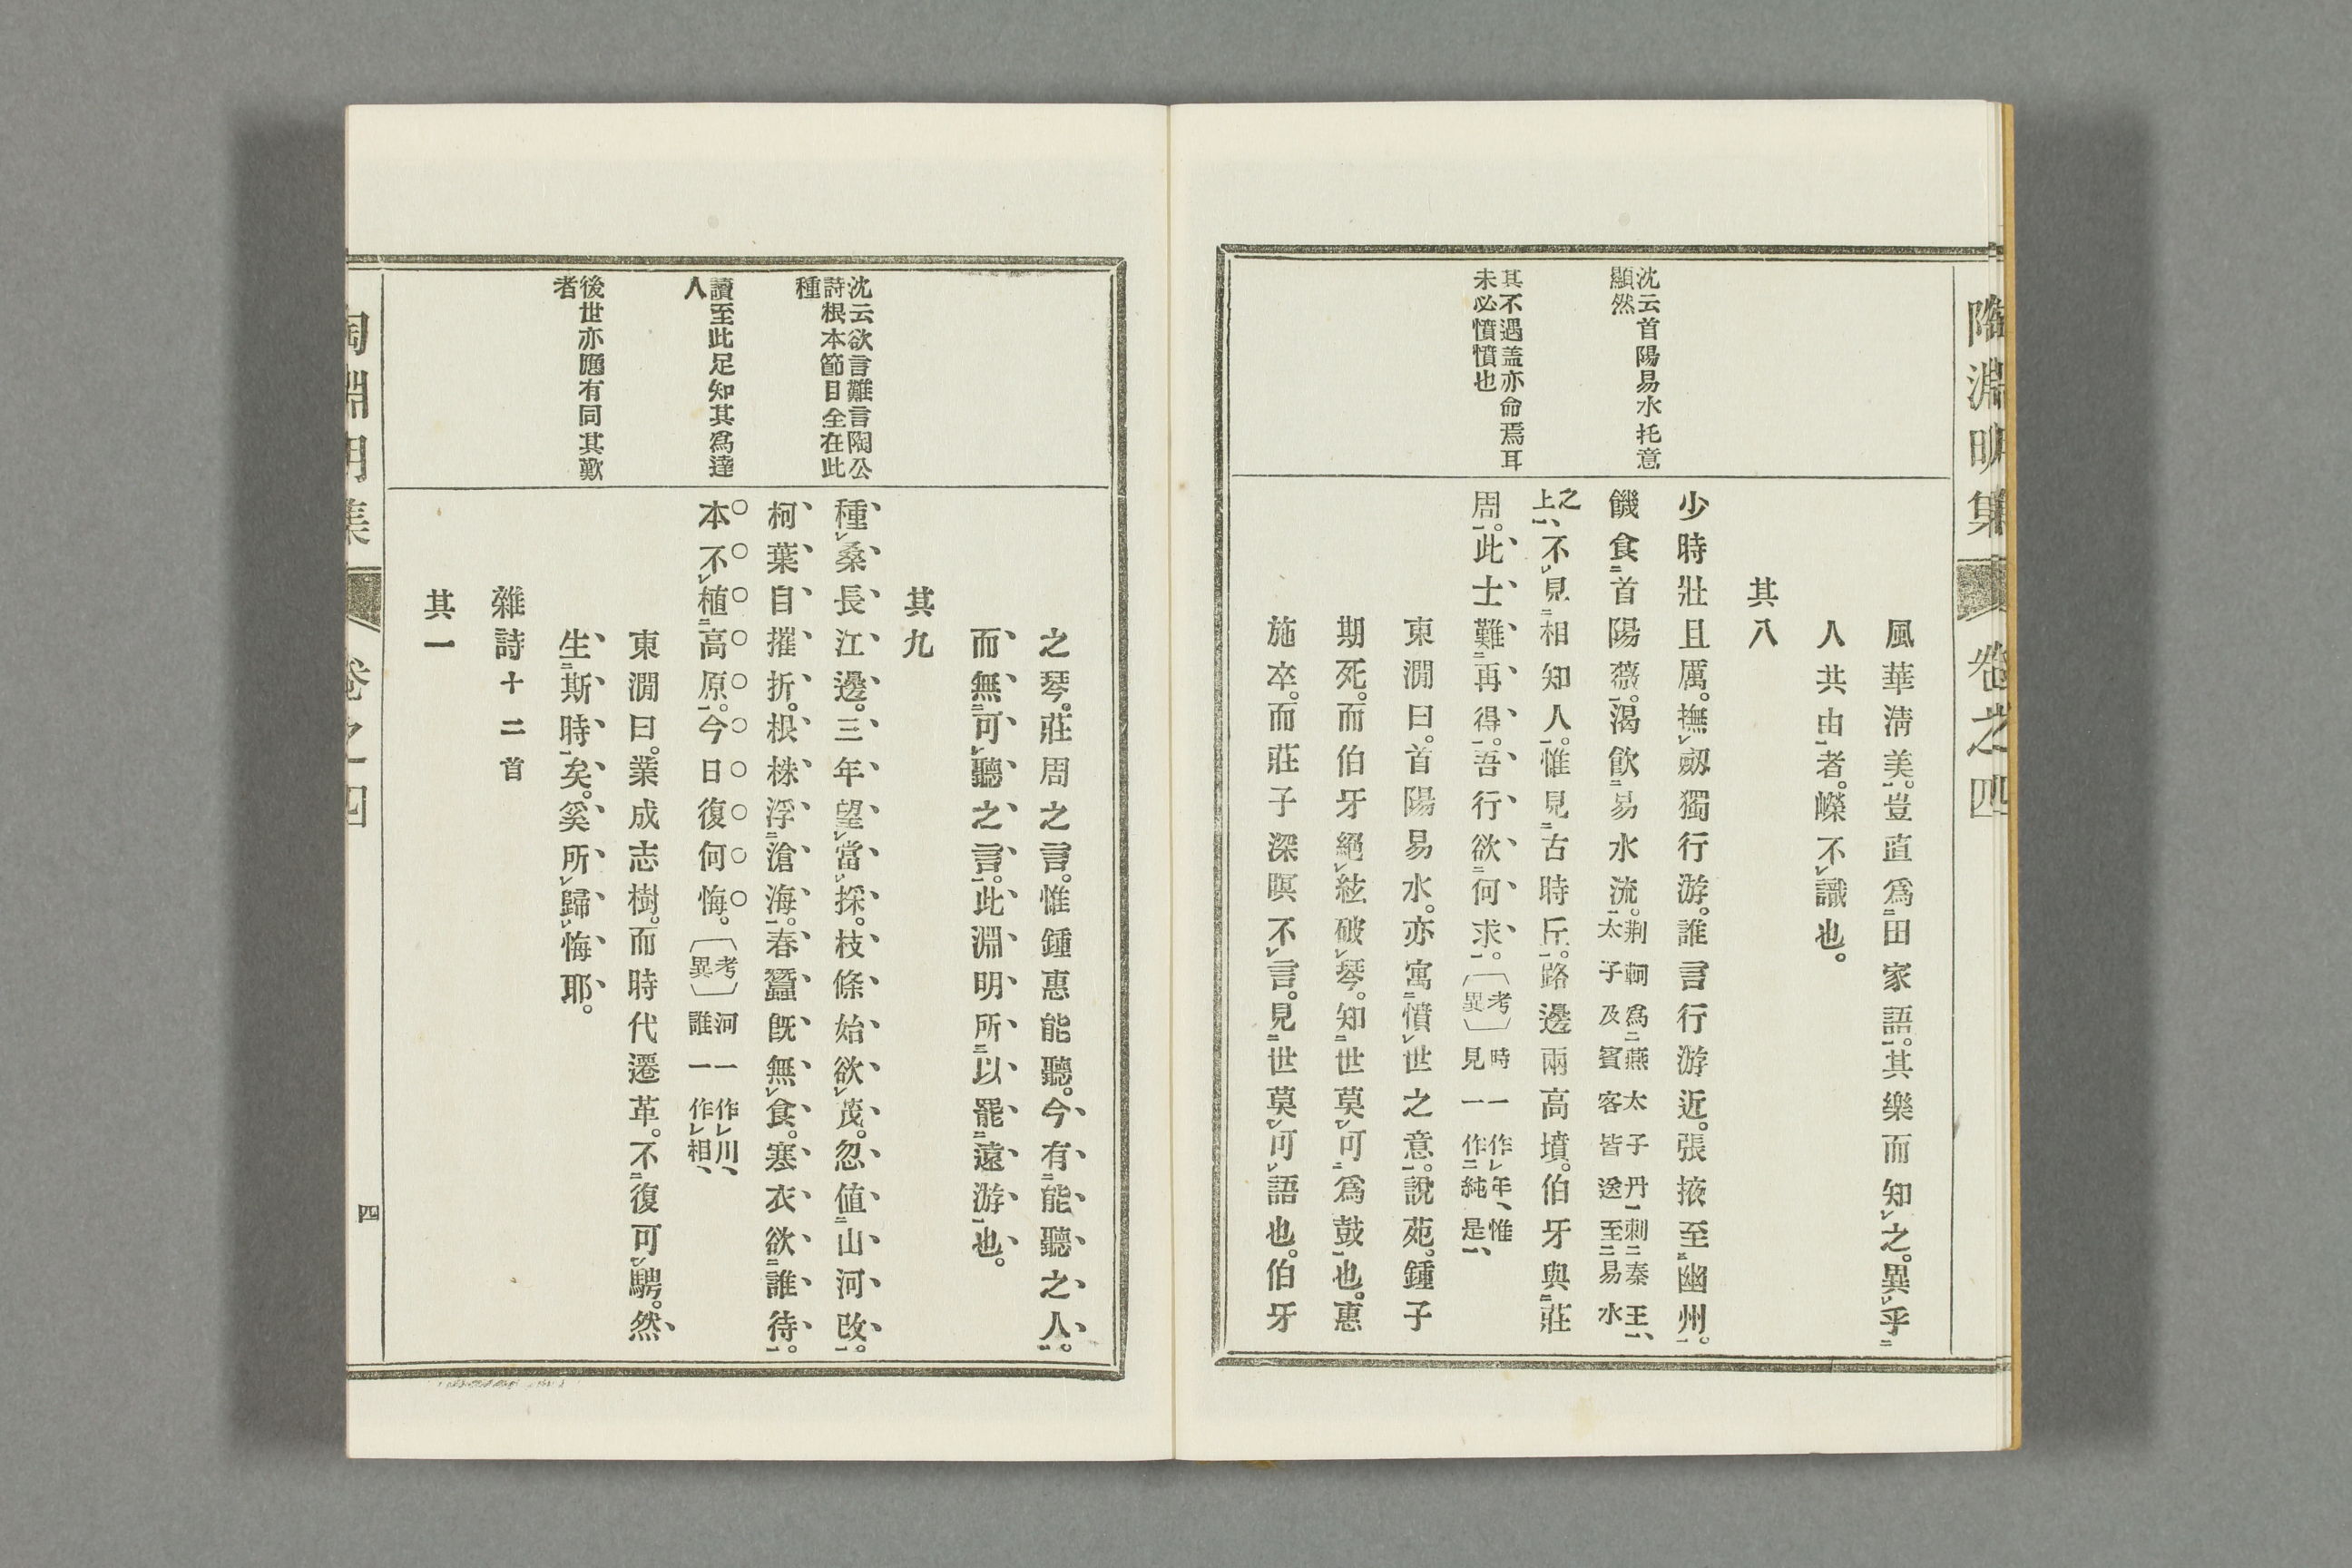 陶淵明集 卷之四
沈云首陽易水托意
顯然
其不遇盖亦命焉耳
未必憤憤也
風華清美。豈直爲田家語。其樂而知之。異乎
人共由者。嶸不識也。
其八
少時壯且厲。撫劒獨行游。誰言行游近。張掖至幽州。
饑食首陽薇。渴飲易水流。荆軻爲燕太子丹刺秦王、
太子及賓客皆送至易水
之
上、不見相知人。惟見古時丘。路邊兩高墳。伯牙與莊
周。此士難再得。吾行欲何求。〔考異〕時一作年、惟
見一作純是、
東澗曰。首陽易水。亦寓憤世之意。說苑。鍾子
期死。而伯牙絕絃破琴。知世莫可爲鼓也。惠
施卒。而莊子深瞑不言。見世莫可語也。伯牙
沈云欲言難言陶公
詩根本節目全在此
種
讀至此足知其爲達
人
後世亦應有同其歎
者
之琴。莊周之言。惟鍾惠能聽。今有能聽之人。
而無可聽之言。此淵明所以罷遠游也。
其九
種桑長江邊。三年望當採。枝條始欲茂。忽値山河改。
柯葉自摧折。根株浮滄海。春蠶旣無食。寒衣欲誰待。
本不植高原。今日復何悔。〔考異〕河一作川、
誰一作相、
東澗曰。業成志樹。而時代遷革。不復可騁。然
生斯時矣。奚所歸悔耶。
雜詩十二首
其一
陶淵明集 卷之四 四